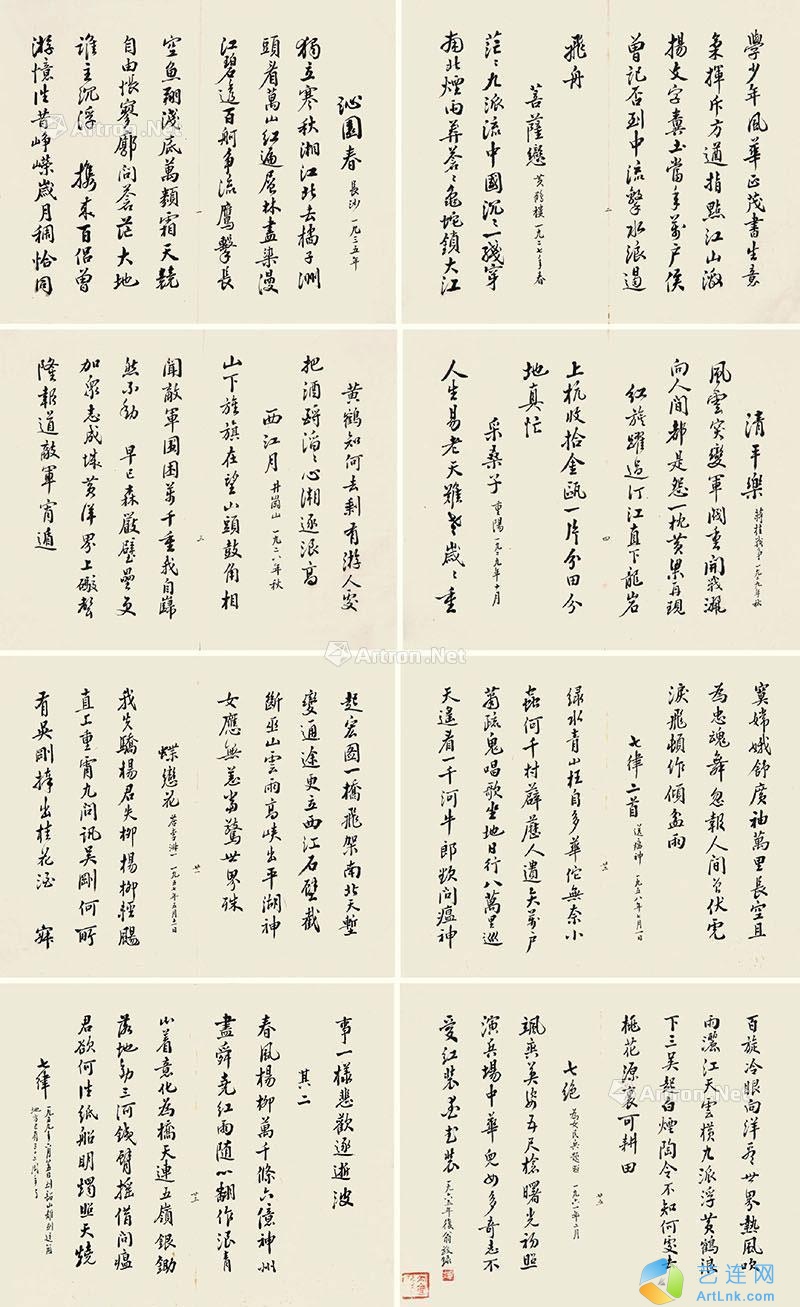 沁園春 長沙 一九二五年
獨立寒秋湘江北去橘子洲
頭看萬山紅遍層林盡染漫
江碧透百舸争流鷹擊長
空魚翔淺底萬類霜天競
自由悵寥廓問蒼茫大地
誰主沉浮 携來百侣曾
游憶往昔崢嶸歲月稠恰同
一
學少年風華正茂書生意
氣揮斥方遒指點江山激
揚文字糞土當年萬户侯
曾記否到中流擊水浪遏
飛舟
菩薩蠻 黄鶴樓 一九二七年春
茫〻九派流中國沉〻一綫穿
南北煙雨莽蒼〻龜蛇鎖大江
二
黄鶴知何去剩有游人處
把酒酹滔〻心潮逐浪高
西江月 井崗山 一九二八年秋
山下旌旗在望山頭鼓角相
聞敵軍圍困萬千重我自巋
然不動 早已森嚴壁壘更
加衆志成城黄洋界上礮聲
隆報道敵軍宵遁
三
清平樂 蔣桂戰争 一九二九年秋
風雲突變軍閥重開戰灑
向人間都是怨一枕黄粱再現
紅旗躍過汀江直下龍岩
上杭收拾金甌一片分田分
地真忙
采桑子 重陽 一九二九年十月
人生易老天難老歲〻重
四
起宏圖一橋飛架南北天塹
變通途更立西江石壁截
斷巫山雲雨高峽出平湖神
女應無恙當驚世界殊
蝶戀花 答李淑一 一九五七年五月十一日
我失驕楊君失柳楊柳輕颺
直上重霄九問訊吳剛何所
有吳剛捧出桂花酒 寂
廿一
寞嫦娥舒廣袖萬里長空且
為忠魂舞忽報人間曾伏虎
淚飛頓作傾盆雨
七律二首 送瘟神 一九五八年七月一日
緑水青山枉自多華佗無奈小
蟲何千村薜荔人遺矢萬户
蕭疏鬼唱歌坐地日行八萬里巡
天遥看一千河牛郎欲問瘟神
廿二
事一樣悲歡逐逝波
其二
春風楊柳萬千條六億神州
盡舜堯紅雨隨心翻作浪青
山着意化為橋天連五嶺銀鋤
落地動三河鐵臂摇借問瘟
君欲何往紙船明燭照天燒
七律 一九五九年六月廿五日到韶山離别這個地方已有三十二周年了
廿三
百旋冷眼向洋看世界熱風吹
雨灑江天雲横九派浮黄鶴浪
下三吴起白煙陶令不知何處去
桃花源裏可耕田
七絶 為女民兵題照 一九六一年二月
颯爽英姿五尺槍曙光初照
演兵場中華兒女多奇志不
愛紅裝愛武裝 一九六五年復翁敬録
廿五
Artron.Net
艺连网
ArtLnk.Com